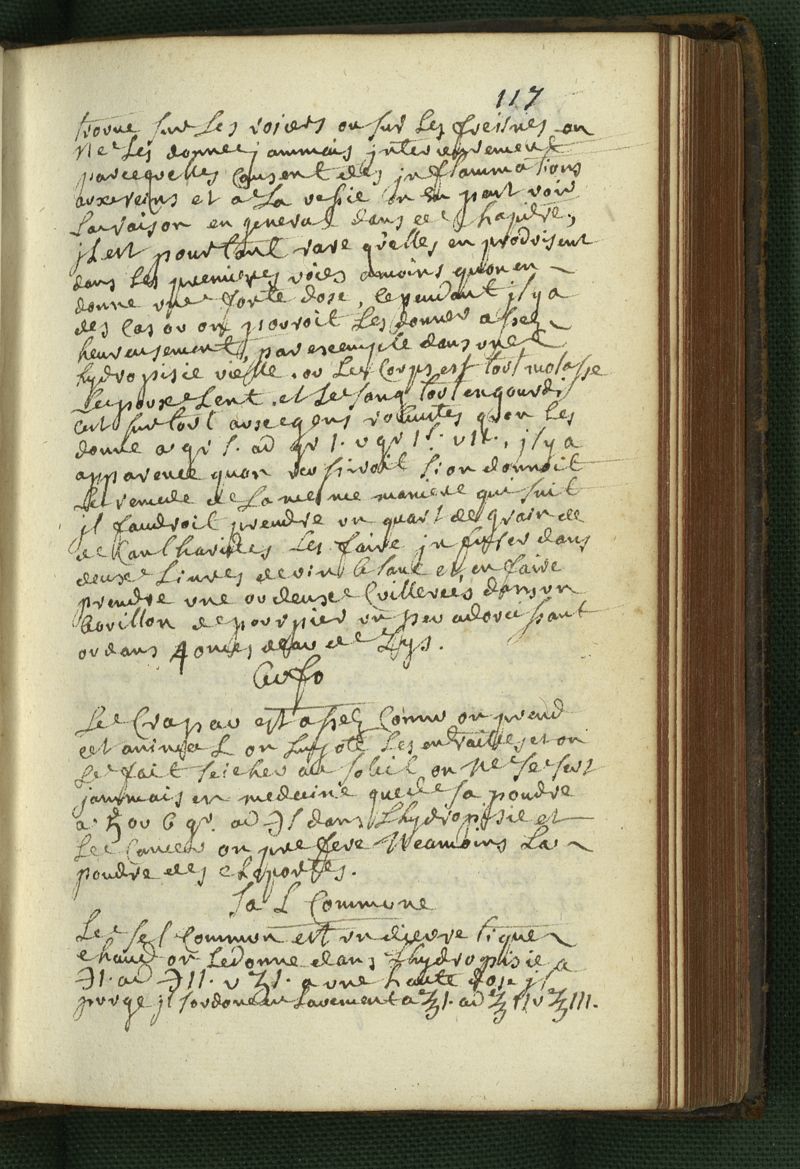 117
trovue sur Les rosiers ou sur Les freisnes on
ne Les donne jammais jnterieurement
parcequelles Causent des jnflammations
aux reins et a La vessie on En peut voir
La raison en general dans ce Chapitre,
jl est pourtant rare qu'elles en prodvisent
dans Les premieres voies amoins quon en
donne vne forte dose, Cependant jl y a
des Cas ou on pouroit Les donner assez
heureusement, par exemple dans vne
hydropisie vieille. ou Le Corps est tout molasse
Le poux Lent. et Le sang tout engourdi
Cest sur tout aux gens robustes quon Les
donne a gr s. ad gr 1. v gr 1s. v 11. , jl y a
apparence quon reussiroit si on donnoit
Le remede de La meme maniere qui suit
jl faudroit prendre vn quart de grain de
de Cantharides Les faire jnfuser dans
deux Livres de vin blanc et en faire
prendre vne ou deux Cuillereés dans vn
bouillon de pourpier vn peu adoucissant
ou dans 4 onces deau de Lys.
Bufo
Le Crapau est assez Connu on prend
cet animal on Luy ote Les entrailles et on
Le fait seicher au soleil on ne se sert
jammais en medecine que de sa poudre
a ou 6 gr. ad ℈ s dans Lhydropisie et
Le Cancer on prefere Neamoins La
poudre des Cloportes.
Sal Commune
Le sel Commun est vn dieuretique
chaud on Le donne dans Lhydropisie a
℈1. ad ℈11. v ʒ1. a vne haute dose jl
purge jl sordonne en Lavement a ℥1. ad ℥11 v ℥111.